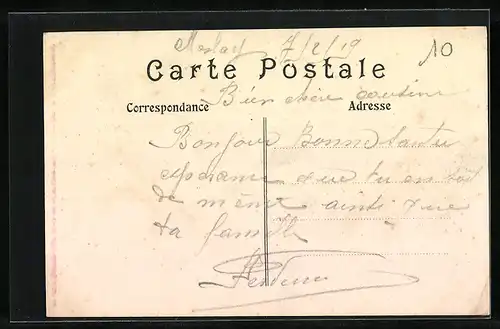 7/2/19
10
Carte Postale
Bien chère cousine
Correspondance
Adresse
Bonjour Bonne santé
que tu en soit
de même ainsi que
ta famille